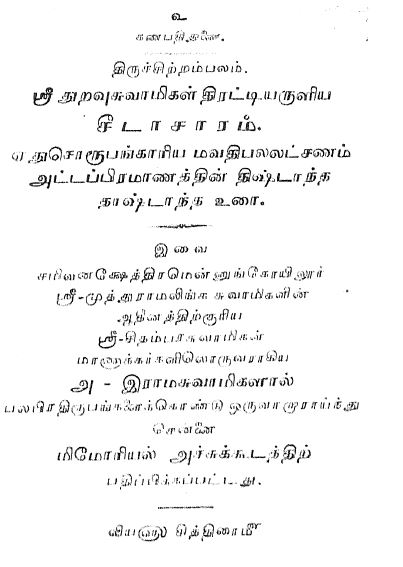 உ
கணபதிதுணை.
திருச்சிற்றம்பலம்.
ஸ்ரீ துறவுசுவாமிகள் திரட்டியருளிய
சீடாசாரம்.
ஏதுசொரூபங்காரிய மவதிபலலட்சணம்
அட்டப்பிரமாணத்தின் திஷ்டாந்த
தாஷ்டாந்த உரை.
இவை
சமிவனக்ஷேத்திரமென்னுங்கோயிலூர்
ஸ்ரீ-முத்துராமலிங்க சுவாமிகளின்
ஆதினத்திற்குரிய
ஸ்ரீ-சிதம்பரசுவாமிகள்
மாணாக்கர்களிலொருவராகிய
அ - இராமசுவாமிகளால்
பலபிரதிரூபங்களைக்கொண்டு ஒருவாறாராய்ந்து
சென்னை
மிமோரியல் அச்சுக்கூடத்திற்
பதிப்பிக்கப்பட்டது.
விய௵ சித்திரை௴